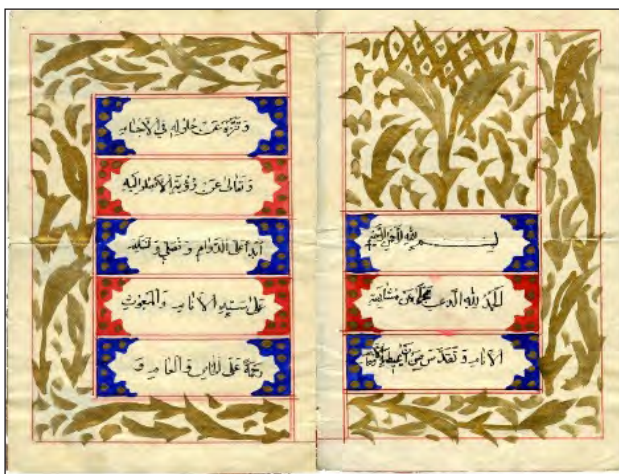 بسم الله الرحمن الرحيم
الحمد لله الذي تجلى عن مشابهة
الأنام وتقدس عن أن يحيطه
وتنزه عن حلوله في الأجسام
وتعالى عن رؤية الأبصار إليه
أبدا على الدوام ونصلي ونسلم
على سيد الأنام والمبعوث
رحمة على الخاص والعام و